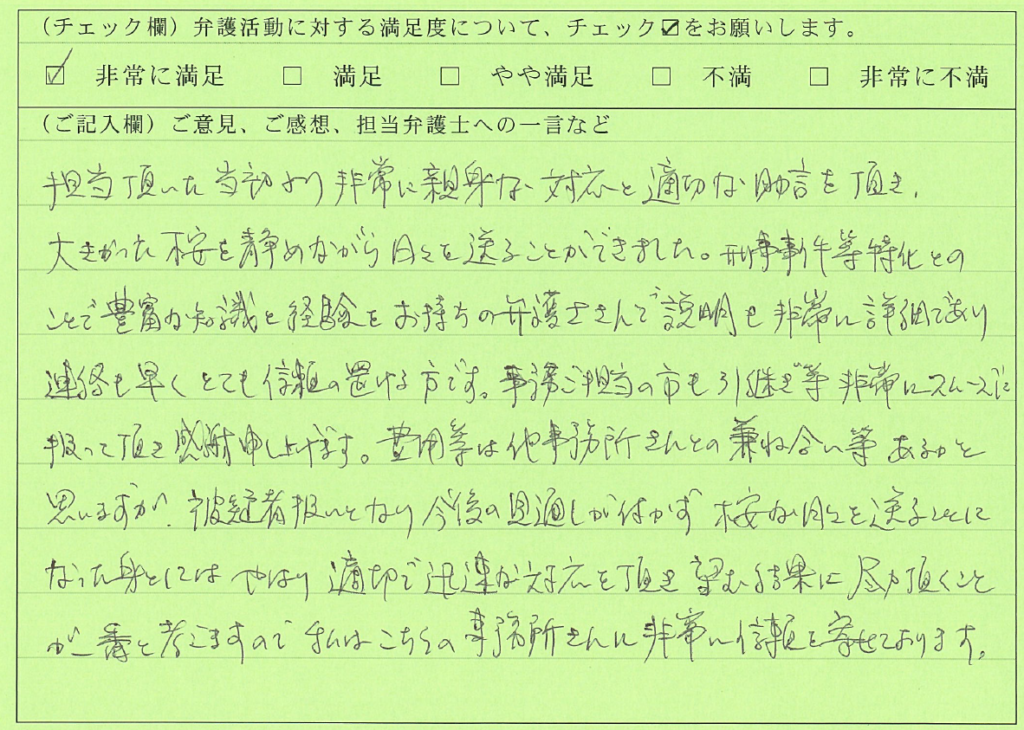 (チェック欄)弁護活動に対する満足度について、チェック☑をお願いします。
☑ 非常に満足 □ 満足 □ やや満足 □ 不満 □ 非常に不満
(ご記入欄)ご意見、ご感想、担当弁護士への一言など
担当頂いた当初より非常に親身な対応と適切な助言を頂き、
大きかった不安を静めながら日々を送ることができました。刑事事件等特化との
ことで豊富な知識と経験をお持ちの弁護士さんで説明も非常に詳細であり
連絡も早くとても信頼の置ける方です。事務ご担当の方も引継ぎ等非常にスムーズに
扱って頂き感謝申し上げます。費用等は他事務所さんとの兼ね合い等あるかと
思いますが、被疑者扱いとなり今後の見通しが付かず不安な日々を送ることに
なった身としては やはり適切で迅速な対応を頂き望む結果に尽力頂くこと
が一番と考えますので私はこちらの事務所さんに非常に信頼を寄せております。